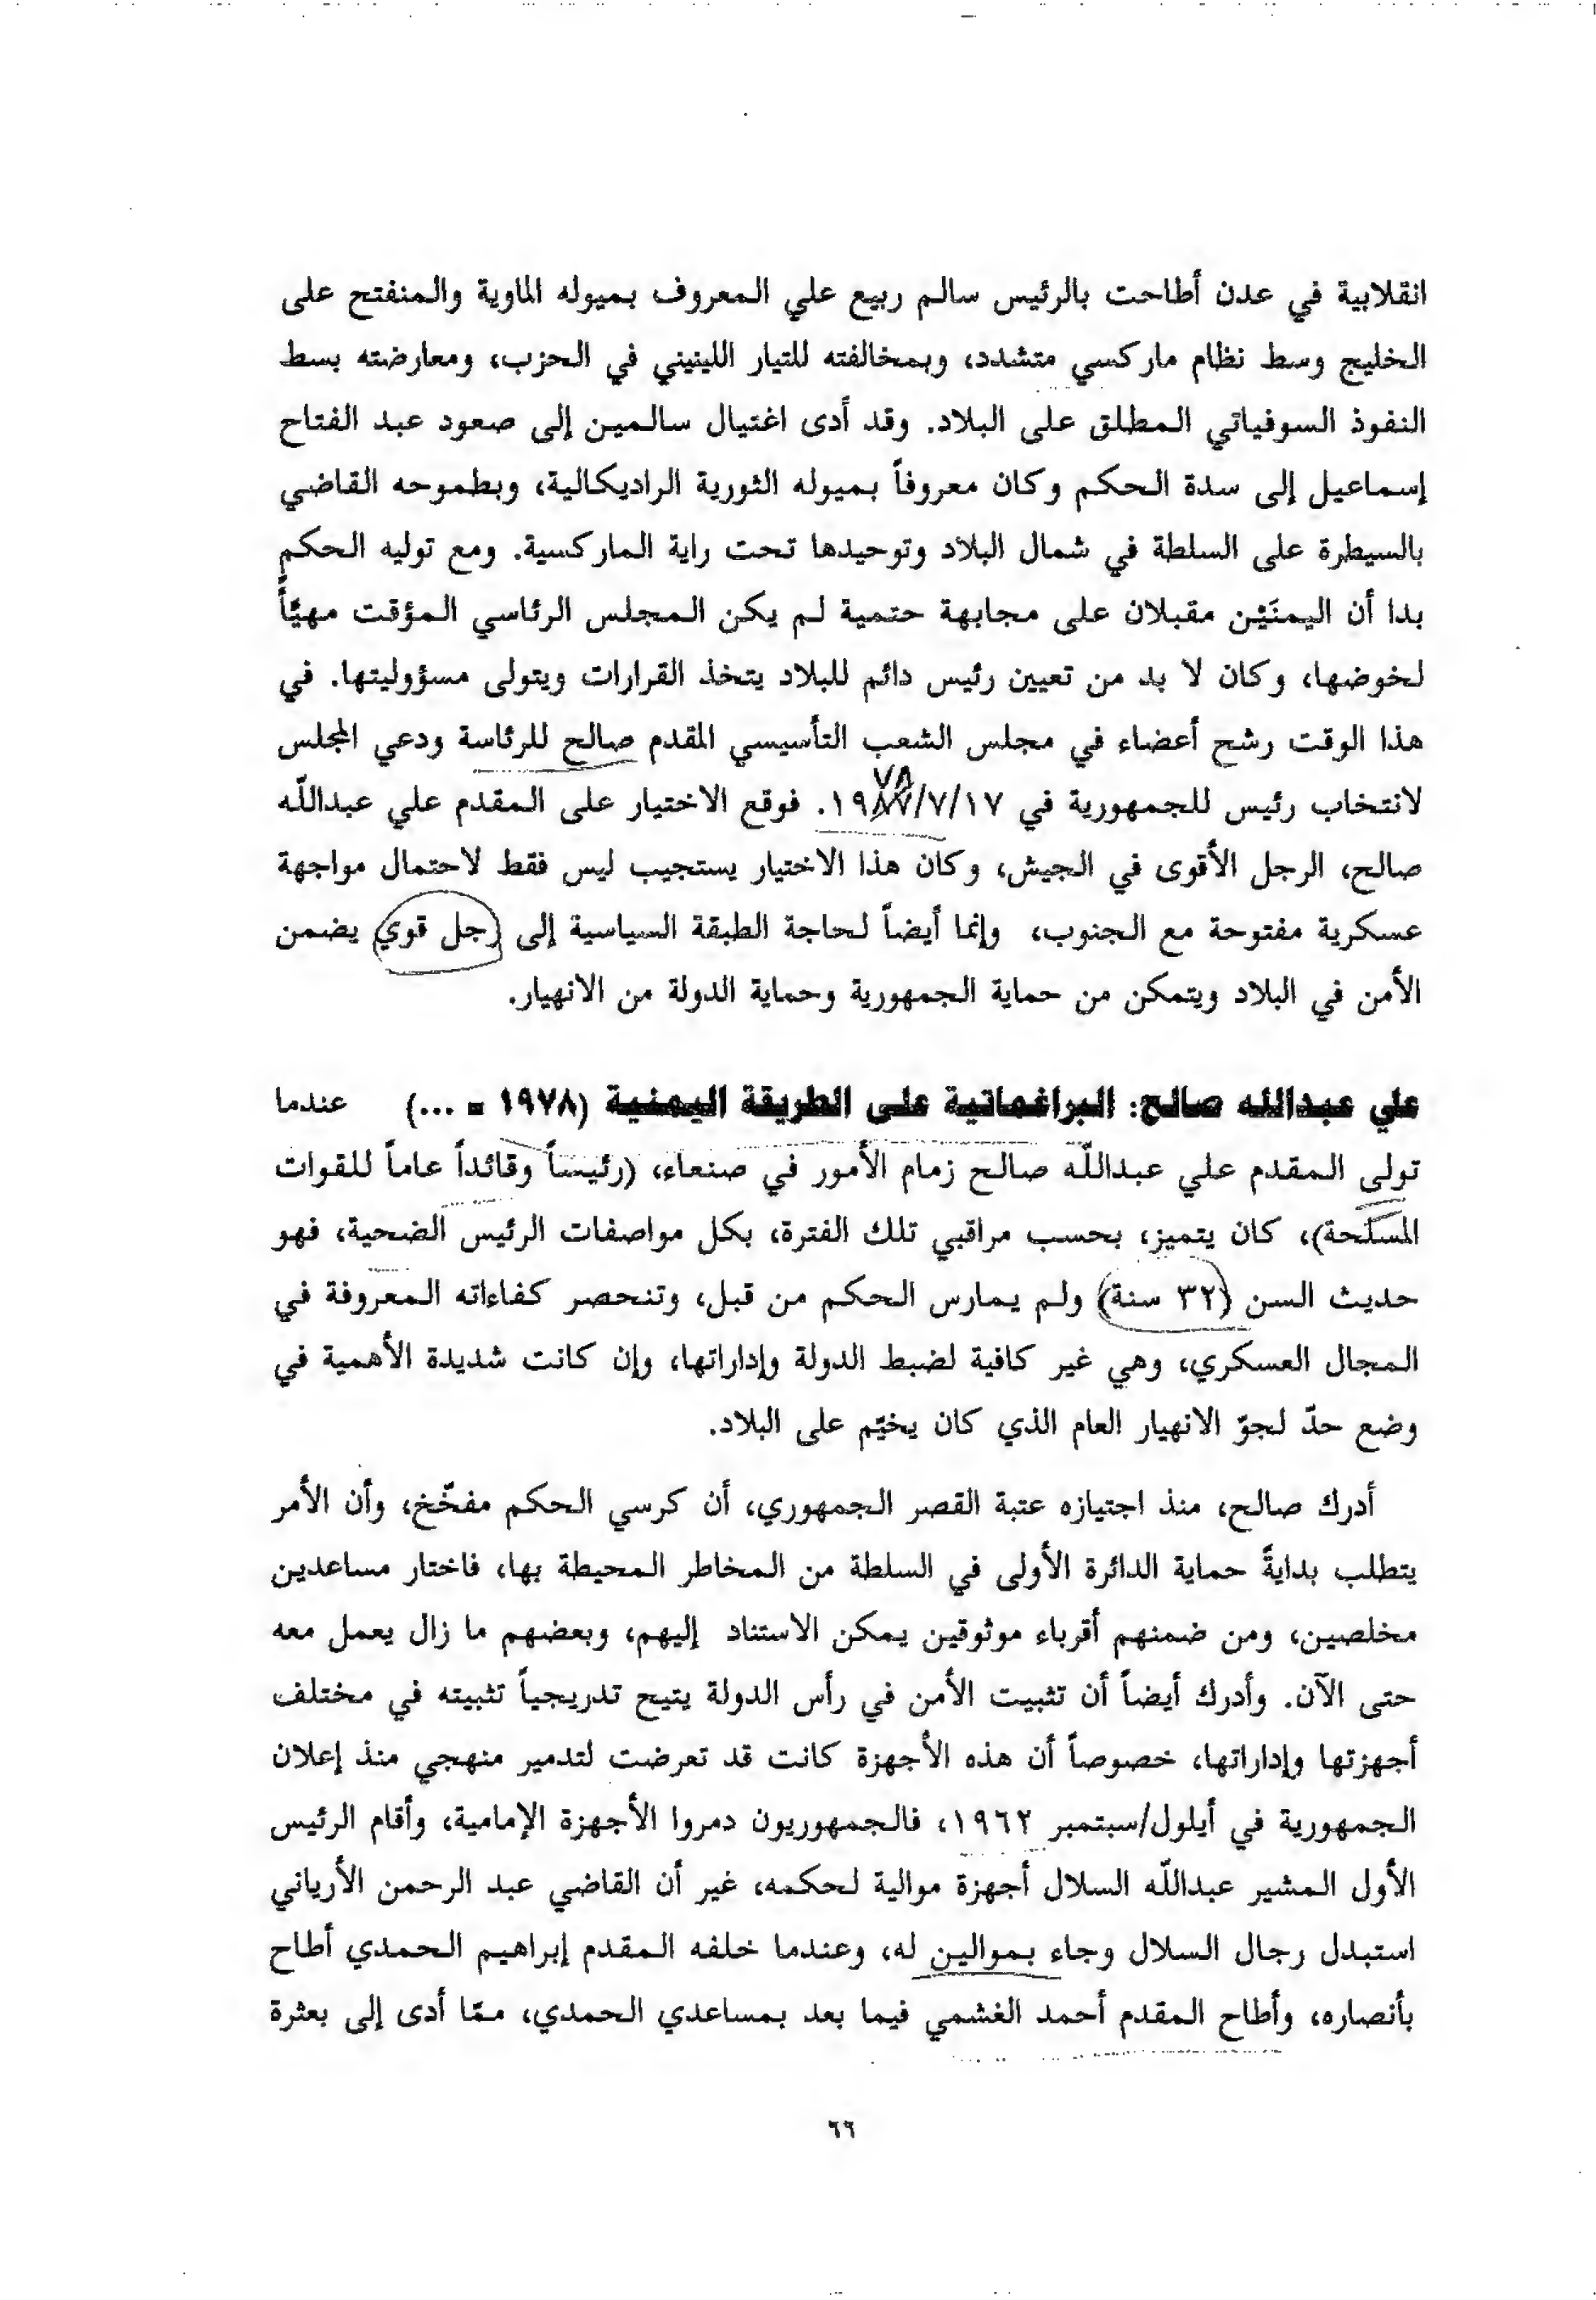 انقلابية في عدن أطاحت بالرئيس سالم ربيع علي المعروف بميوله الماوية والمنفتح على
الخليج وسط نظام ماركسي متشدد، وبمخالفته للتيار اللينيني في الحزب، ومعارضته بسط
النفوذ السوفياتي المطلق على البلاد. وقد أدى اغتيال سالمين إلى صعود عبد الفتاح
إسماعيل إلى سدة الحكم وكان معروفاً بميوله الثورية الراديكالية، وبطموحه القاضي
بالسيطرة على السلطة في شمال البلاد وتوحيدها تحت راية الماركسية. ومع توليه الحكم
بدا أن اليمنَيْن مقبلان على مجابهة حتمية لم يكن المجلس الرئاسي المؤقت مهيّأً
لخوضها، وكان لا بد من تعيين رئيس دائم للبلاد يتخذ القرارات ويتولى مسؤوليتها. في
هذا الوقت رشح أعضاء في مجلس الشعب التأسيسي المقدم صالح للرئاسة ودعي المجلس
٧٨
لانتخاب رئيس للجمهورية في ١٧/٧/١٩٨٧. فوقع الاختيار على المقدم علي عبداللّه
صالح، الرجل الأقوى في الجيش، وكان هذا الاختيار يستجيب ليس فقط لاحتمال مواجهة
عسكرية مفتوحة مع الجنوب، وإنما أيضاً لحاجة الطبقة السياسية إلى رجل قوي يضمن
الأمن في البلاد ويتمكن من حماية الجمهورية وحماية الدولة من الانهيار.
علي عبدالله صالح: البراغماتية على الطريقة اليمنية (١٩٧٨ - ...) عندما
تولى المقدم علي عبداللّه صالح زمام الأمور في صنعاء، (رئيساً وقائداً عاماً للقوات
المسلّحة)، كان يتميز، بحسب مراقبي تلك الفترة، بكل مواصفات الرئيس الضحية، فهو
حديث السن (٣٢ سنة) ولم يمارس الحكم من قبل، وتنحصر كفاءاته المعروفة في
المجال العسكري، وهي غير كافية لضبط الدولة وإداراتها، وإن كانت شديدة الأهمية في
وضع حدّ لجوّ الانهيار العام الذي كان يخيّم على البلاد.
أدرك صالح، منذ اجتيازه عتبة القصر الجمهوري، أن كرسي الحكم مفخّخ، وأن الأمر
يتطلب بدايةً حماية الدائرة الأولى في السلطة من المخاطر المحيطة بها، فاختار مساعدين
مخلصين، ومن ضمنهم أقرباء موثوقين يمكن الاستناد إليهم، وبعضهم ما زال يعمل معه
حتى الآن. وأدرك أيضاً أن تثبيت الأمن في رأس الدولة يتيح تدريجياً تثبيته في مختلف
أجهزتها وإداراتها، خصوصاً أن هذه الأجهزة كانت قد تعرضت لتدمير منهجي منذ إعلان
الجمهورية في أيلول/سبتمبر ١٩٦٢، فالجمهوريون دمروا الأجهزة الإمامية، وأقام الرئيس
الأول المشير عبداللّه السلال أجهزة موالية لحكمه، غير أن القاضي عبد الرحمن الأرياني
استبدل رجال السلال وجاء بموالين له، وعندما خلفه المقدم إبراهيم الحمدي أطاح
بأنصاره، وأطاح المقدم أحمد الغشمي فيما بعد بمساعدي الحمدي، ممّا أدى إلى بعثرة
٦٦